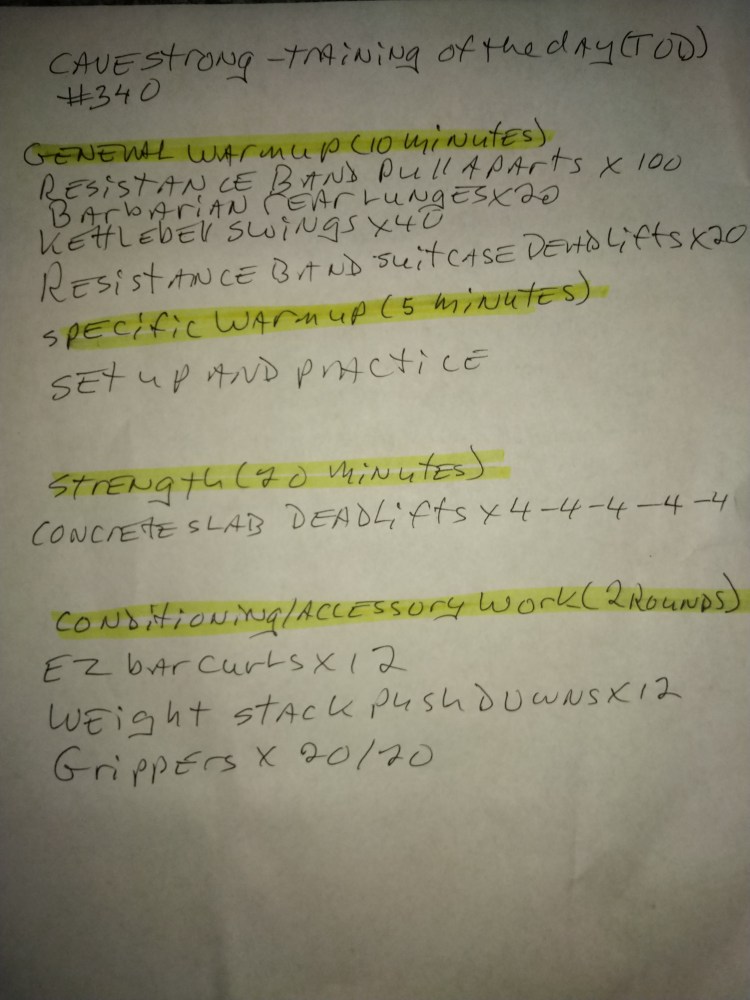 CAVEstrong - training of the day (TOD)
#340
GENERAL WARMUP (10 MINUTES)
RESISTANCE BAND PULL APARTS X 100
BARBARIAN REAR LUNGES X 20
KETTLEBELL SWINGS X 40
RESISTANCE BAND SUITCASE DEADLIFTS X 20
SPECIFIC WARMUP (5 MINUTES)
SET UP AND PRACTICE
STRENGTH (20 MINUTES)
CONCRETE SLAB DEADLIFTS X 4-4-4-4-4
CONDITIONING/ACCESSORY WORK (2 ROUNDS)
EZ bar CURLS X 12
WEIGHT STACK PUSHDOWNS X 12
GRIPPERS X 20/20